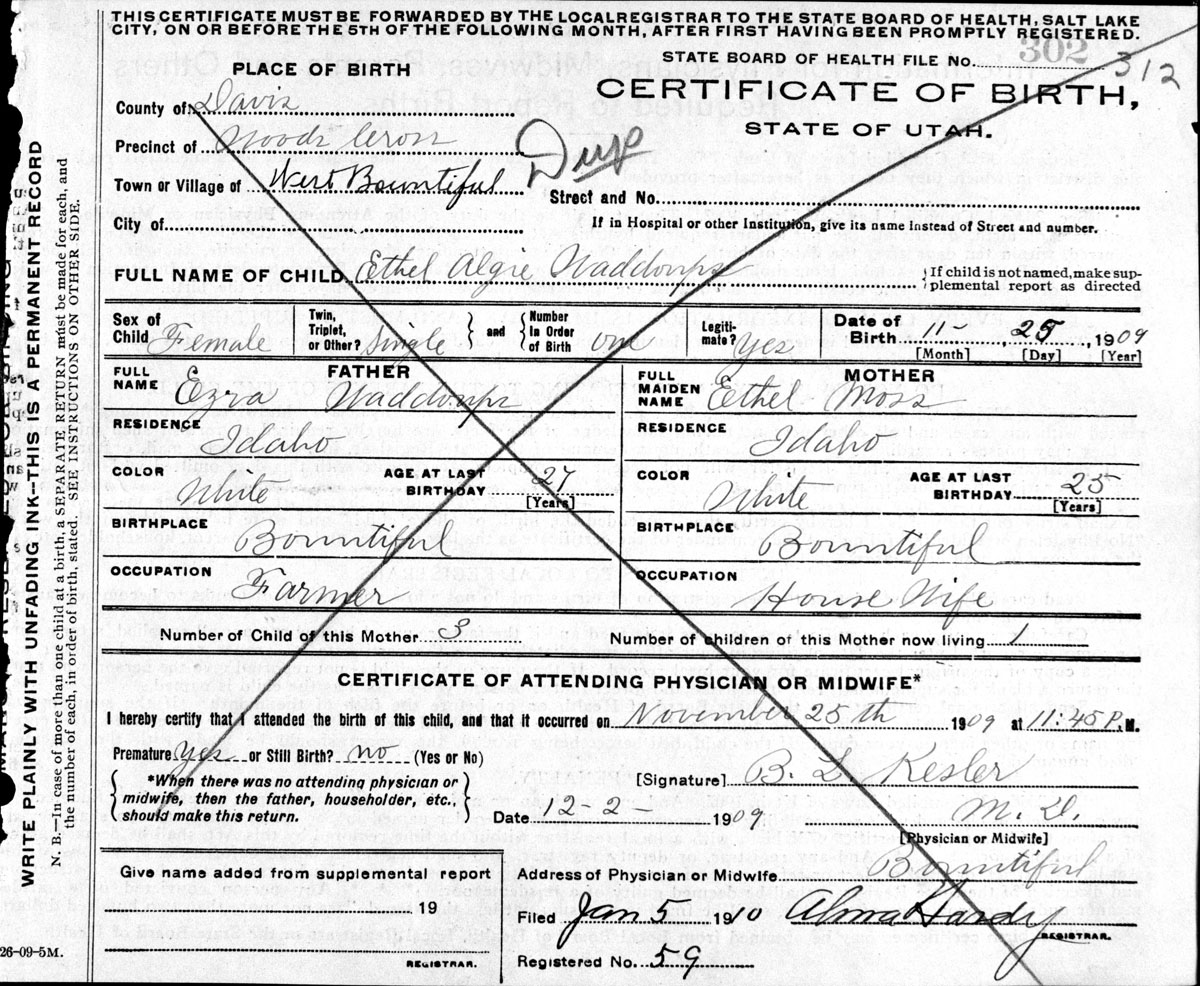 THIS CERTIFICATE MUST BE FORWARDED BY THE LOCAL REGISTRAR TO THE STATE BOARD OF HEALTH, SALT LAKE
CITY, ON OR BEFORE THE 5TH OF THE FOLLOWING MONTH, AFTER FIRST HAVING BEEN PROMPTLY REGISTERED.
302
STATE BOARD OF HEALTH FILE No. 312
PLACE OF BIRTH
CERTIFICATE OF BIRTH,
STATE OF UTAH.
County of Davis
Precinct of Woods Cross
Dup
Town or Village of West Bountiful
Street and No.
City of
If in Hospital or other Institution, give its name instead of Street and number.
FULL NAME OF CHILD Ethel Algie Waddoups
{If child is not named, make sup-
plemental report as directed
Sex of Child Female
Twin, Triplet, or Other? Single } and { Number In Order of Birth one
Legiti-mate? yes
Date of Birth 11- , 25 , 1909
[Month] [Day] [Year]
FATHER
FULL NAME Ezra Waddoups
MOTHER
FULL MAIDEN NAME Ethel Moss
RESIDENCE Idaho
RESIDENCE Idaho
COLOR White AGE AT LAST BIRTHDAY 27 [Years]
COLOR White AGE AT LAST BIRTHDAY 25 [Years]
BIRTHPLACE Bountiful
BIRTHPLACE Bountiful
OCCUPATION Farmer
OCCUPATION House Wife
Number of Child of this Mother 3 Number of children of this Mother now living 1
CERTIFICATE OF ATTENDING PHYSICIAN OR MIDWIFE*
I hereby certify that I attended the birth of this child, and that it occurred on November 25th 1909 at 11:45 P. M.
Premature yes or Still Birth? no (Yes or No)
*When there was no attending physician or
midwife, then the father, householder, etc.,
should make this return.
[Signature] B. L. Kesler
Date 12-2- 1909 M. D.
[Physician or Midwife]
Give name added from supplemental report
19
REGISTRAR.
Address of Physician or Midwife Bountiful
Filed Jan 5 1910 Alma Hardy
REGISTRAR.
Registered No. 59
26-09-5M.
WRITE PLAINLY WITH UNFADING INK--THIS IS A PERMANENT RECORD
N. B.—In case of more than one child at a birth, a SEPARATE RETURN must be made for each, and
the number of each, in order of birth, stated. SEE INSTRUCTIONS ON OTHER SIDE.